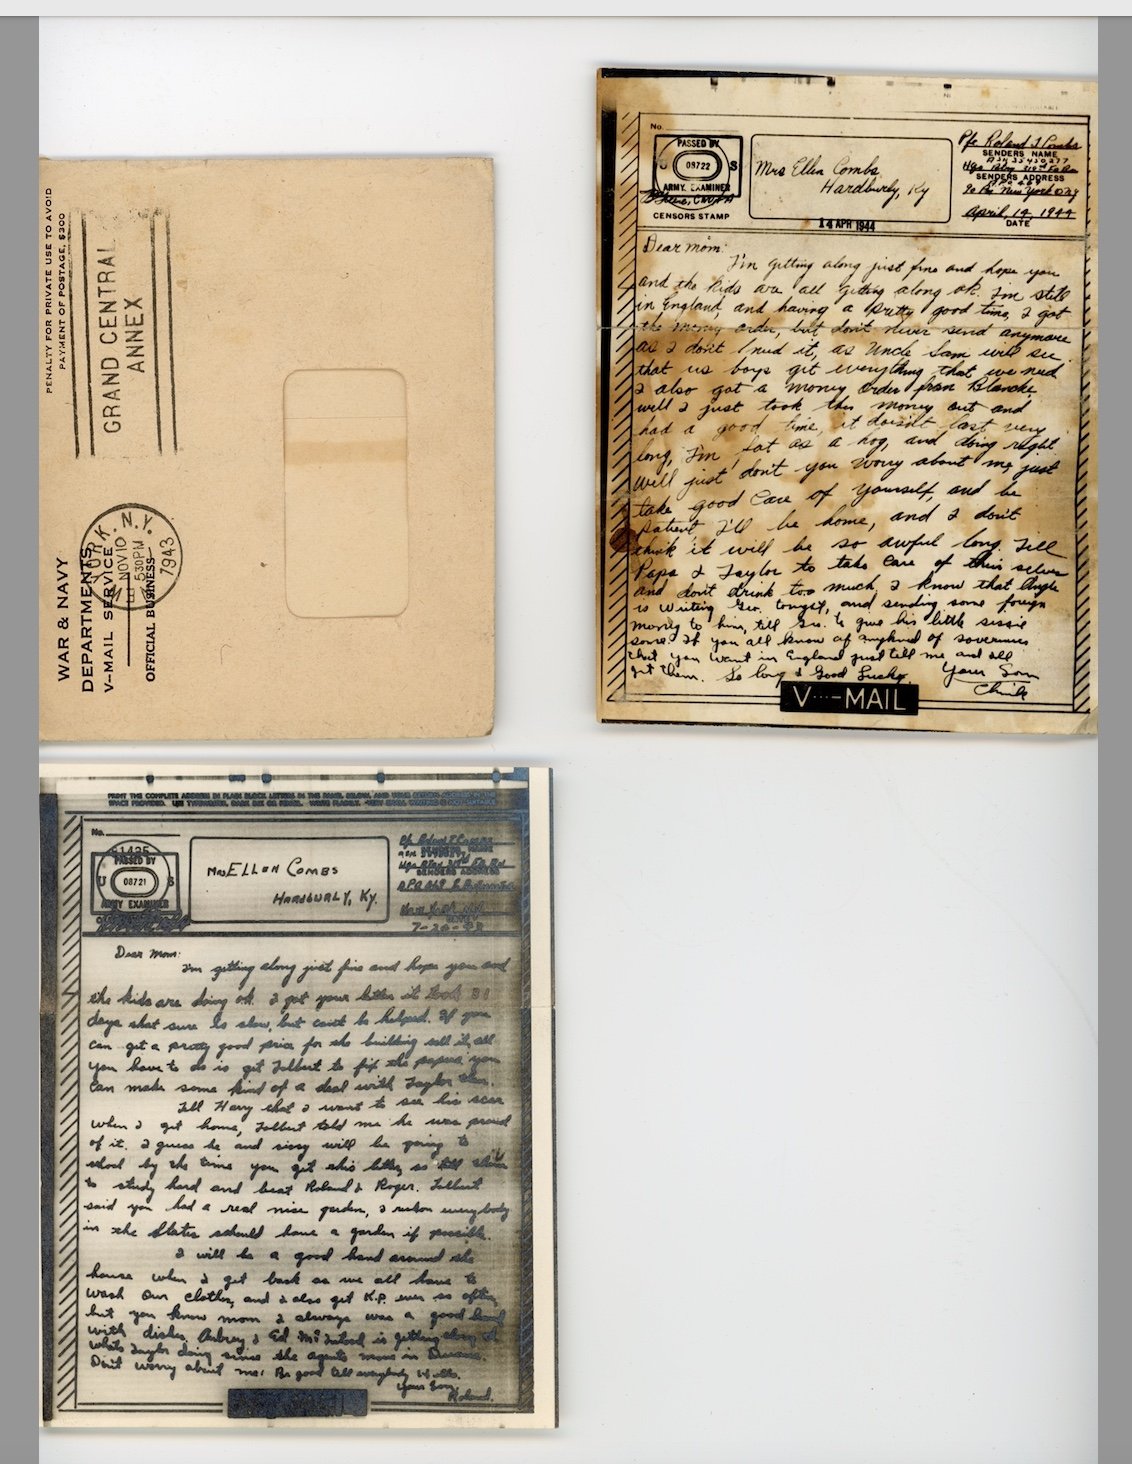 PENALTY FOR PRIVATE USE TO AVOID
PAYMENT OF POSTAGE, $300
GRAND CENTRAL
ANNEX
WAR & NAVY
DEPARTMENTS
V-MAIL SERVICE
OFFICIAL BUSINESS
YORK, N.Y.
NOV 10
5 30 PM
1943
No.
PASSED BY
U 08722 S
ARMY EXAMINER
CENSORS STAMP
Mrs Ellen Combs
Hardburly, Ky
14 APR 1944
Pfc Roland T Combs
SENDERS NAME
SENDERS ADDRESS
New York N.Y
April, 14, 1944
DATE
Dear mom:
I'm getting along just fine and hope you
and the kids are all getting along ok. I'm still
in England, and having a pretty good time, I got
the money order, but don't never send anymore
as I don't need it, as Uncle Sam will see
that us boys get everything that we need
I also got a money order from Blanche
well I just took this money out and
had a good time, it doesn't last very
long, I'm fat as a hog, and doing right
well just don't you worry about me, just
take good care of yourself, and be
patient, I'll be home, and I don't
think it will be so awful long. Tell
Papa & Taylor to take care of their selves
and don't drink too much. I know that Angle
is writing Geo. tonight, and sending some foreign
money to him, tell Geo. to give his little sissie
some. If you all know of anykind of soveriners
that you want in England just tell me and I'll
get them. So long & Good Lucky.
Your Son
V···-MAIL
PRINT THE COMPLETE ADDRESS IN PLAIN BLOCK LETTERS IN THE PANEL BELOW, AND YOUR RETURN ADDRESS IN THE
SPACE PROVIDED. USE TYPEWRITER, DARK INK OR PENCIL. WRITE PLAINLY. VERY SMALL WRITING IS NOT SUITABLE
No.
PASSED BY
U 08721 S
ARMY EXAMINER
Mrs ELLEN COMBS
HARDBURLY, KY.
SENDERS ADDRESS
7-26-43
Dear Mom:
I'm getting along just fine and hope you and
the kids are doing ok. I got your letter it took 31
days that sure is slow, but can't be helped. If you
can get a pretty good price for the building sell it, all
you have to do is get Talbert to fix the papers, you
can make some kind of a deal with Taylor
Tell Harry that I want to see his scar
when I get home, Talbert told me he was proud
of it. I guess he and sissy will be going to
school by the time you get this letter, so tell them
to study hard and beat Roland & Roger. Talbert
said you had a real nice garden, I reckon everybody
in the States should have a garden if possible.
I will be a good hand around the
house when I get back as we all have to
wash our clothes, and I also get K.P. ever so often,
but you know mom I always was a good hand
with dishes. Aubrey & Ed McIntosh is getting along ok
whats Taylor doing since the agents move in
Don't worry about me! Be good tell everybody Hello.
Your Son,
Roland.